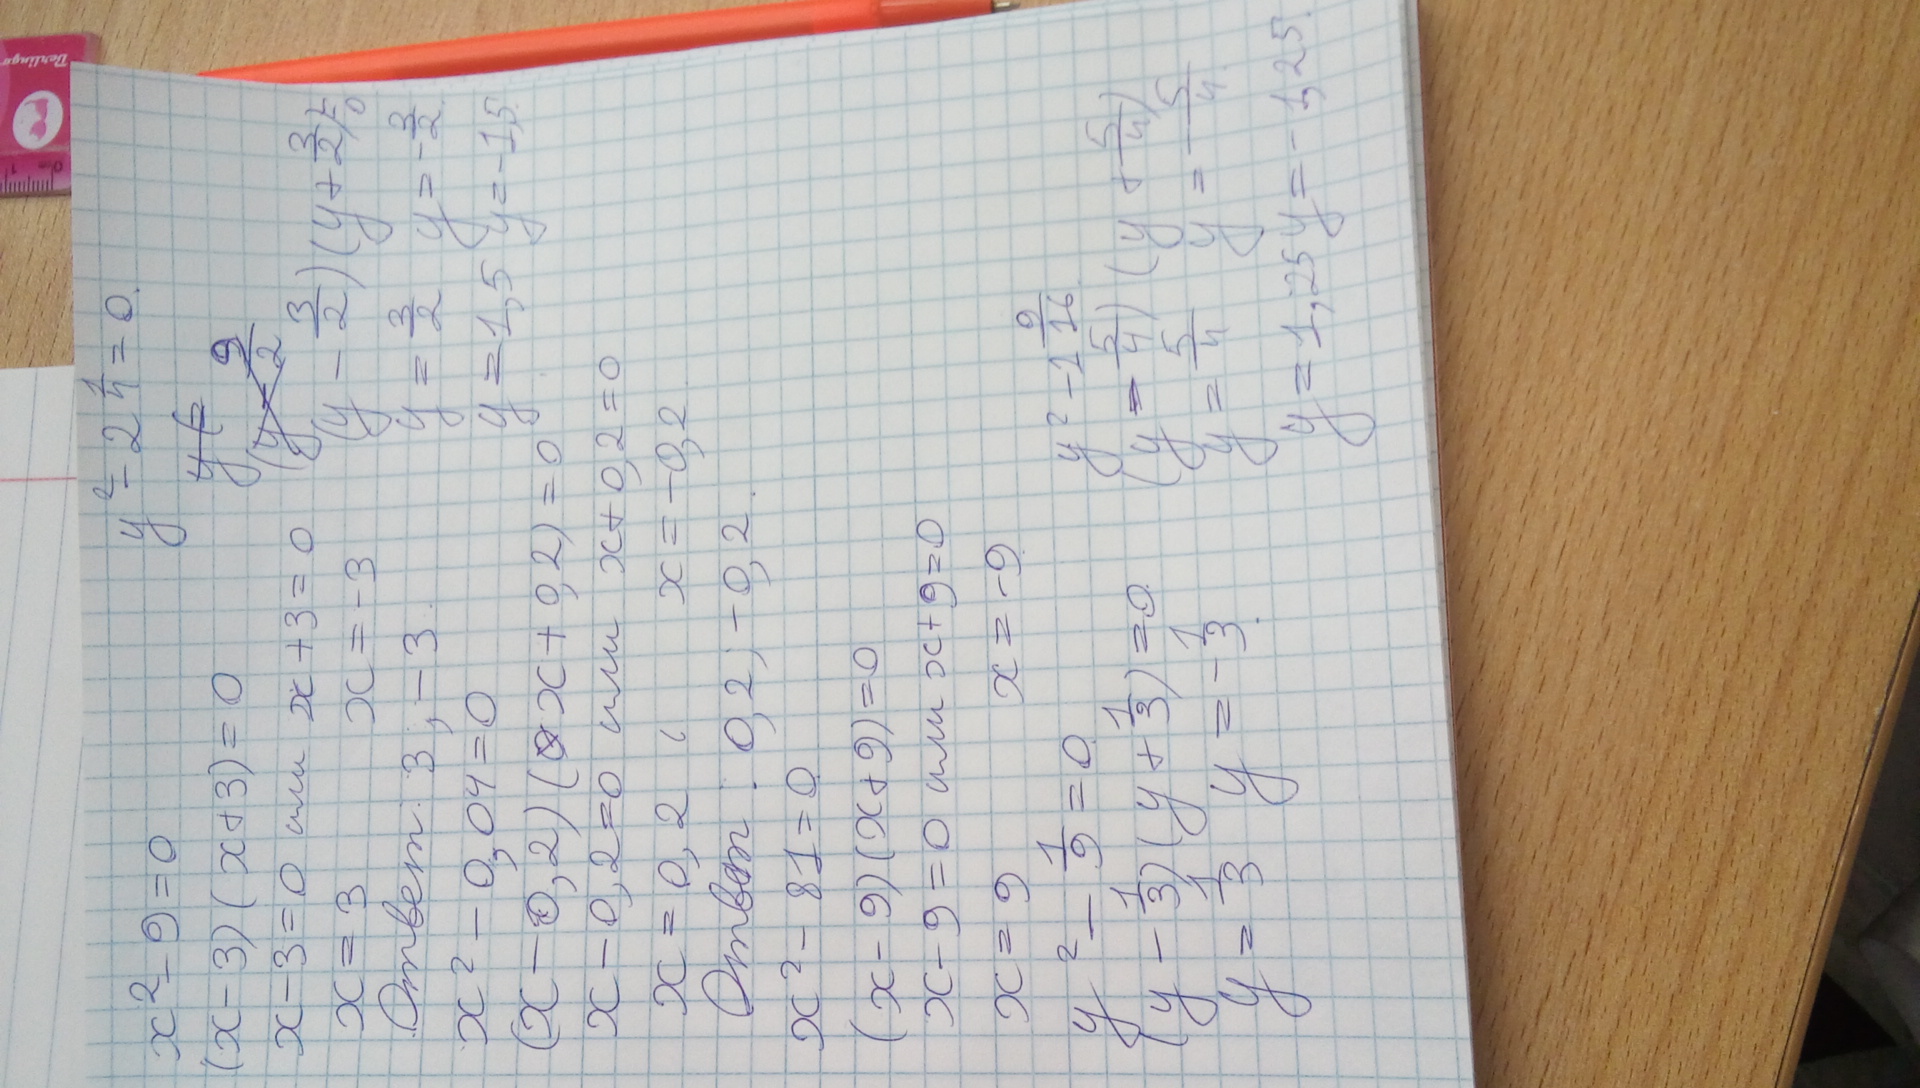 x² - 9 = 0
(x - 3)(x + 3) = 0
x - 3 = 0 или x + 3 = 0
x = 3 x = -3
Ответ: 3, -3.
x² - 0,04 = 0
(x - 0,2)(x + 0,2) = 0
x - 0,2 = 0 или x + 0,2 = 0
x = 0,2 x = -0,2
Ответ: 0,2, -0,2.
x² - 81 = 0
(x - 9)(x + 9) = 0
x - 9 = 0 или x + 9 = 0
x = 9 x = -9
y² - 1/9 = 0
(y - 1/3)(y + 1/3) = 0
y = 1/3 y = -1/3.
y² - 2 1/4 = 0.
(y - 3/2)(y + 3/2) = 0
y = 3/2 y = -3/2
y = 1,5 y = -1,5.
y² - 1 9/16
(y - 5/4)(y + 5/4)
y = 5/4 y = -5/4.
y = 1,25 y = -1,25.
Berlingo
0 1